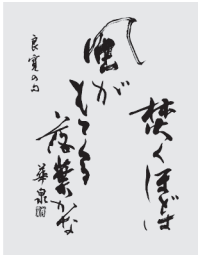 焚くほどは
風がもてくる
落葉かな
良寛の句
華泉